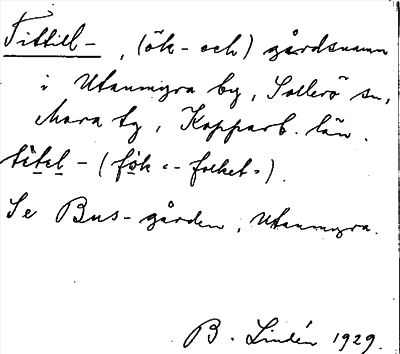 Tittiel-, (ök- och) gårdsnamn
i Utanmyra by, Sollerö sn,
Mora tg, Kopparb. län.
titel- (fo̤k «- folket»).
Se Bus-gården, Utanmyra.
B. Lindén 1929.